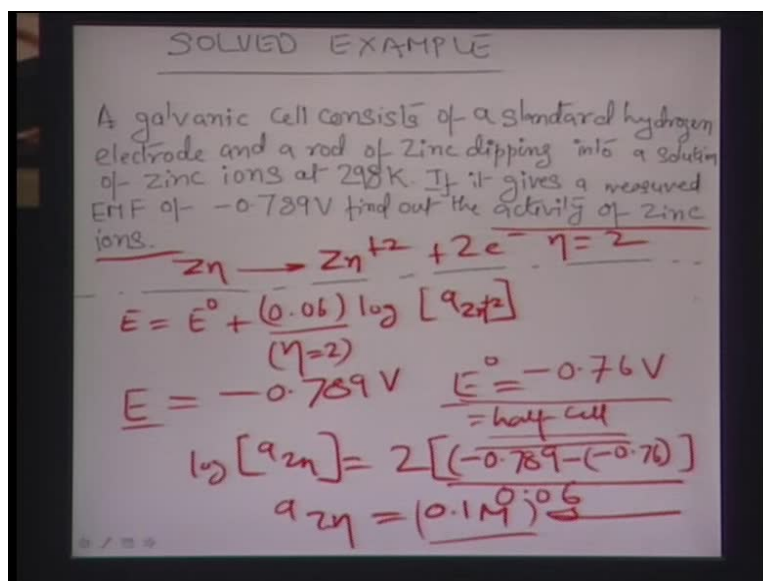 SOLVED EXAMPLE
A galvanic cell consists of a standard hydrogen
electrode and a rod of zinc dipping into a solution
of zinc ions at 298K. If it gives a measured
EMF of -0.789V find out the activity of zinc
ions.
Zn → Zn+2 + 2e- n=2
E = E° + (0.06) log [aZn+2]
(n=2)
E = -0.789 V E° = -0.76 V
= half cell
log [aZn] = 2[(-0.789-(-0.76)]
0.06
aZn = (0.1M)